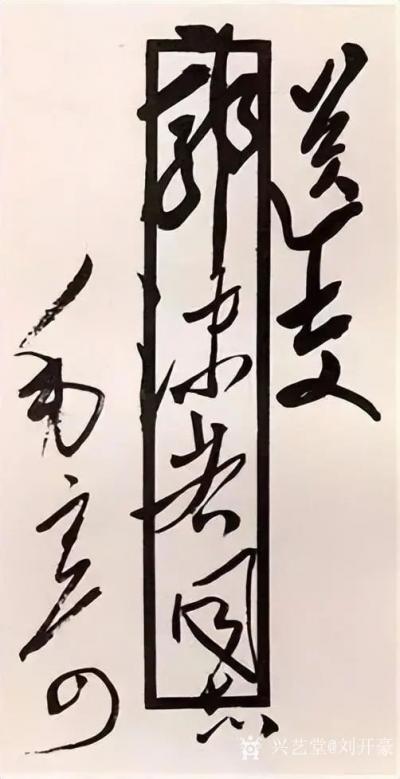 送交
郭沫若同志
毛寄
兴艺堂@刘开豪